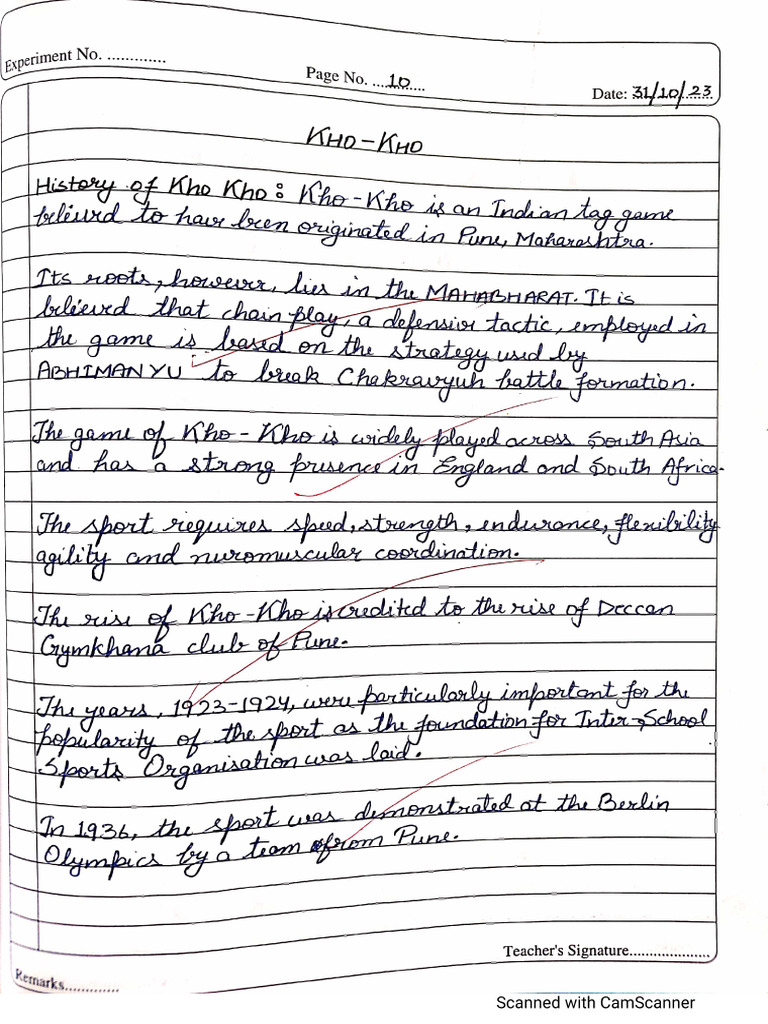 Experiment No. .............
Page No. ...10......
Date: 31/10/23
KHO-KHO
History of Kho Kho: Kho-Kho is an Indian tag game
believed to have been originated in Pune, Maharashtra.
Its roots, however, lies in the MAHABHARAT. It is
believed that chain play, a defensive tactic, employed in
the game is based on the strategy used by
ABHIMANYU to break Chakravyuh battle formation.
The game of Kho-Kho is widely played across South Asia
and has a strong presence in England and South Africa.
The sport requires speed, strength, endurance, flexibility
agility and nuromuscular coordination.
The rise of Kho-Kho is credited to the rise of Deccan
Gymkhana club of Pune.
The years, 1923-1924, were particularly important for the
popularity of the sport as the foundation for Inter-School
Sports Organisation was laid.
In 1936, the sport was demonstrated at the Berlin
Olympics by a team from Pune.
Teacher's Signature.....................
Remarks.............
Scanned with CamScanner